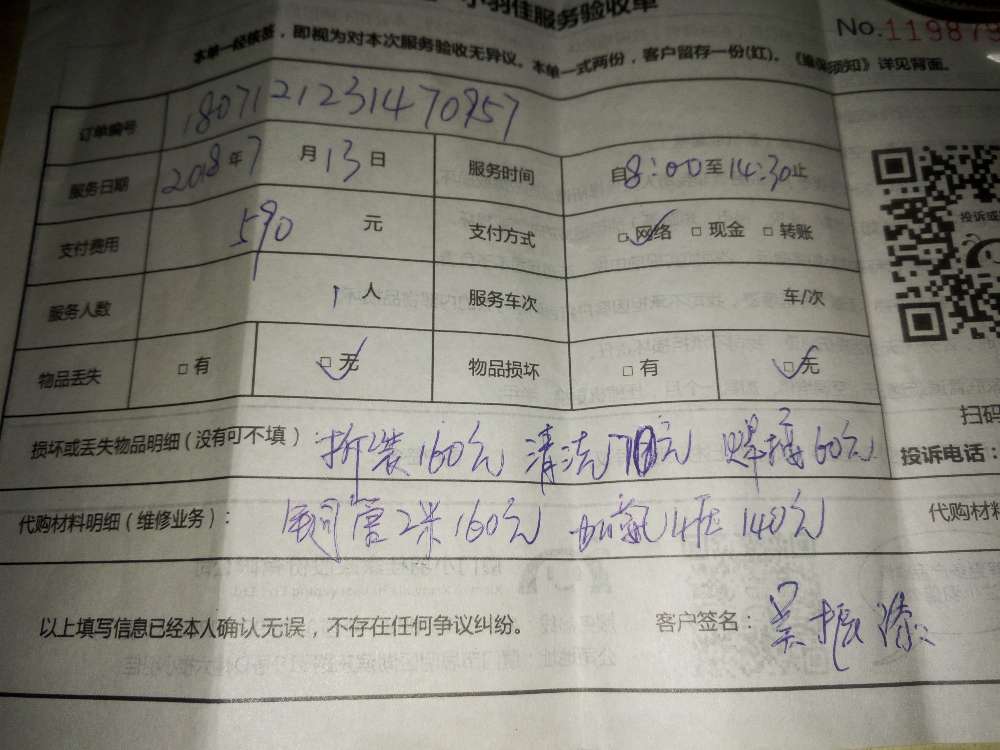 小羽佳服务验收单
No.119879
本单一经核签，即视为对本次服务验收无异议。本单一式两份，客户留存一份(红)。《维保须知》详见背面。
订单编号 180712123147 0957
服务日期 2018年7月13日 服务时间 自8:00至14:30止
支付费用 590 元 支付方式 □网络 □现金 □转账
服务人数 1 人 服务车次 车/次
物品丢失 □有 □无 物品损坏 □有 □无
损坏或丢失物品明细（没有可不填） 拆装160元 清洗70元 焊接60元
代购材料明细（维修业务）： 铜管2米160元 加氟4压140元
以上填写信息已经本人确认无误，不存在任何争议纠纷。
客户签名：吴振
投诉或
扫码
投诉电话：
代购材料